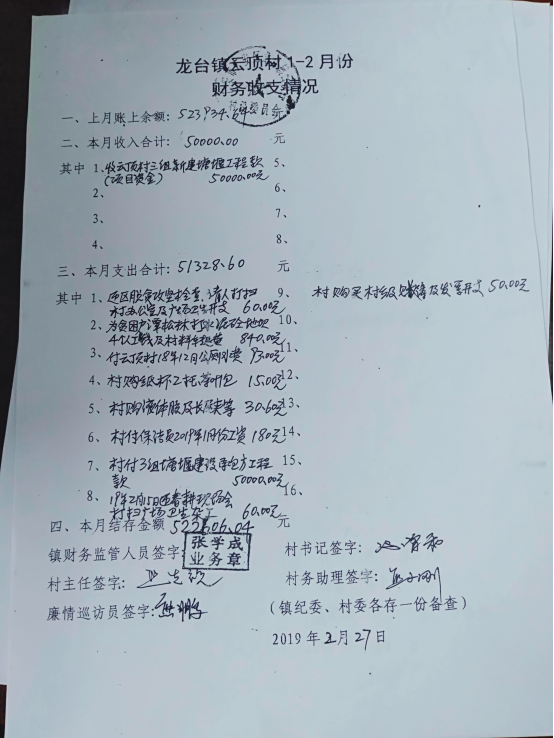 龙台镇云顶村1-2月份
财务收支情况
一、上月账上余额：523934.64元
二、本月收入合计：50000.00 元
其中 1、收云顶村三组新建塘堰工程款 5、
(项目资金) 50000.00元
2、 6、
3、 7、
4、 8、
三、本月支出合计：51328.60 元
其中 1、迎区脱贫攻坚检查，请人打扫 9、 村购买村级 及发票开支 50.00元
村办公室及广场卫生开支 60.00元
2、为贫困户 打水泥砼地坝 10、
4个工钱及材料车 费 840.00元
3、付云顶村18年12月公 费 93.00元 11、
4、村购纸杯2托，茶叶1包 15.00元 12、
5、村购液体胶及长尾夹等 30.60元 13、
6、村付保洁员2019年1月份工资 180元 14、
7、村付3组塘堰建设 方工程 15、
款 50000.00元
8、19年2月15日迎春耕现场会 16、
村扫广场卫生杂工 60.00元
四、本月结存金额 522606.04 元
镇财务监管人员签字 张学成 村书记签字：
业务章
村主任签字： 村务助理签字：
廉情巡访员签字： (镇纪委、村委各存一份备查)
2019年2月27日